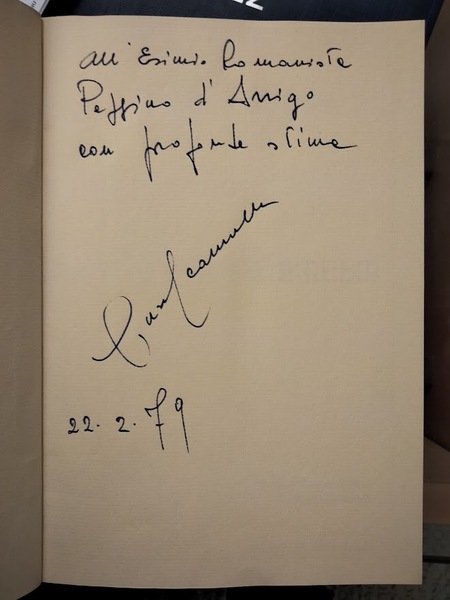 all' Esimio Romanista
Peppino d'Arrigo
con profonda stima
22. 2. 79